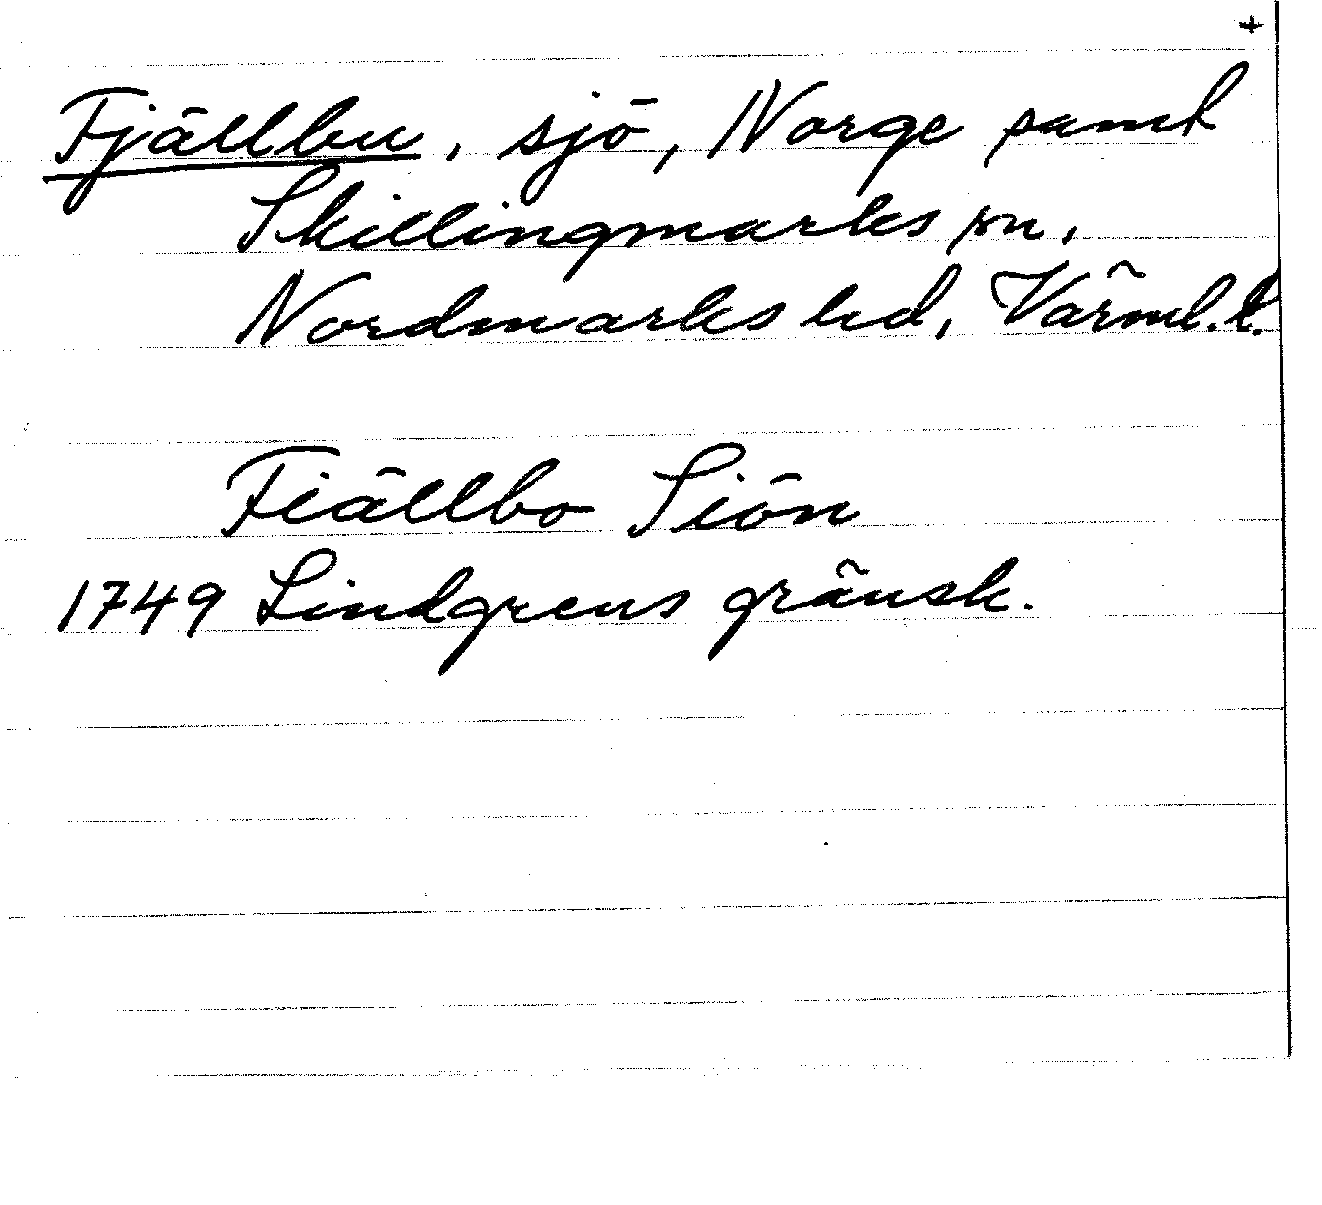 +
Fjällbu, sjö, Norge samt
Skillingmarks sn,
Nordmarks hd, Värml. l.
Fiällbo Siön
1749 Lindgrens gränsk.